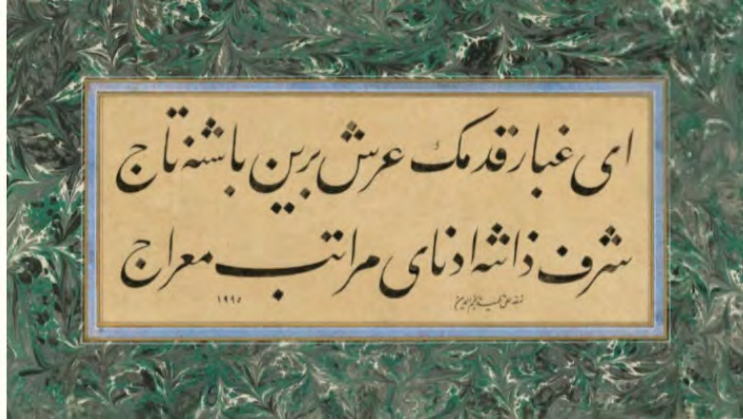 ای غبار قدمك عرش برین باشنه تاج
شرف ذاتنه ادنای مراتب معراج
١٩٩٥